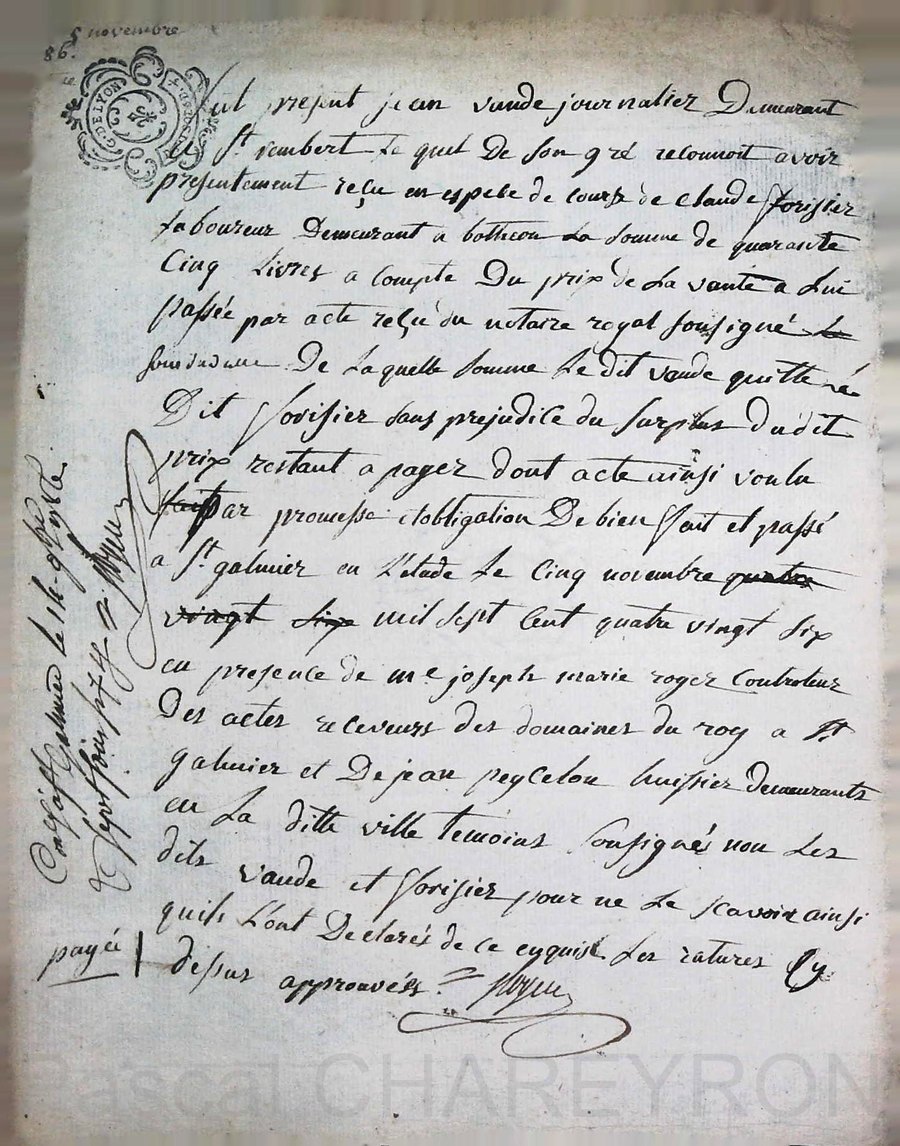 5 novembre
86.
G. DE LYON
fut present jean vande journalier Demeurant
a St rembert Le quel De Son gré reconnoit avoir
presentement reçu en espece de cours de claude forisier
Laboureur Demeurant a botheon La Somme de quarante
Cinq Livres a compte Du prix de La vante a Lui
passée par acte reçu du notaire royal Sousigné
De Laquelle Somme Le dit vande quitte
Dit forisier Sans prejudice du Surplus du dit
prix restant a payer dont acte ainsi voulu
fait par promesse et obligation De bien fait et passé
a St galmier en L'etude Le Cinq novembre quatre
vingt Six mil Sept Cent quatre vingt Six
en presence de me joseph marie roger Controleur
Des actes receveurs des domaines du roy a St
galmier et De jean peycelon huissier demeurants
en La ditte ville temoins Sousignés non Les
dits vande et forisier pour ne Le scavoir ainsi
quils L'ont Declarés de ce enquis Les ratures cy
depus approuvées
payée
St Galmier le 14
Pascal CHAREYRON